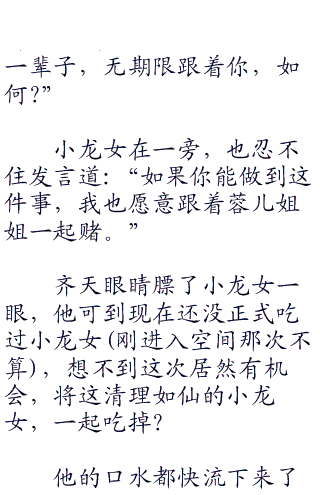 一辈子，无期限跟着你，如
何?”
小龙女在一旁，也忍不
住发言道：“如果你能做到这
件事，我也愿意跟着蓉儿姐
姐一起赌。”
齐天眼睛膘了小龙女一
眼，他可到现在还没正式吃
过小龙女(刚进入空间那次不
算)，想不到这次居然有机
会，将这清理如仙的小龙
女，一起吃掉?
他的口水都快流下来了